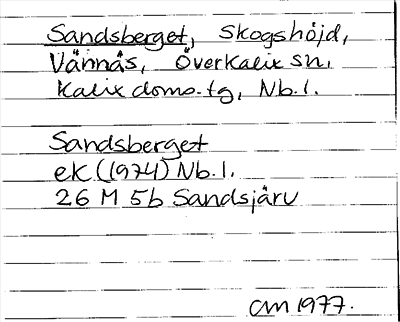 Sandsberget, Skogshöjd,
Vännäs, Överkalix sn,
Kalix doms.tg, Nb.l.
Sandsberget
ek (1974) Nb.l.
26 M 5b Sandsjärv
CM 1977.